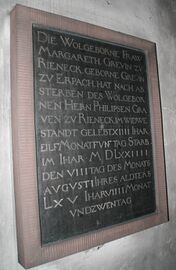 DIE WOLGEBORNE FRAW
MARGARETH GREVIN ZV
RIENECK GEBORNE GREVIN
ZV ERPACH, HAT NACH AB
STERBEN DES WOLGEBOR
NEN HERN PHILIPSEN GRA
VEN ZV RIENECK IM WITWE
STANDT GELEBT XIIII IHAR
EILF MONAT FVNF TAG STARB
IM IHAR M D LXXIIII
DEN VIII TAG DES MONATS
AVGVSTI IHRES ALDTERS
LXV IHAR VIIII MONAT
VND ZWEN TAG